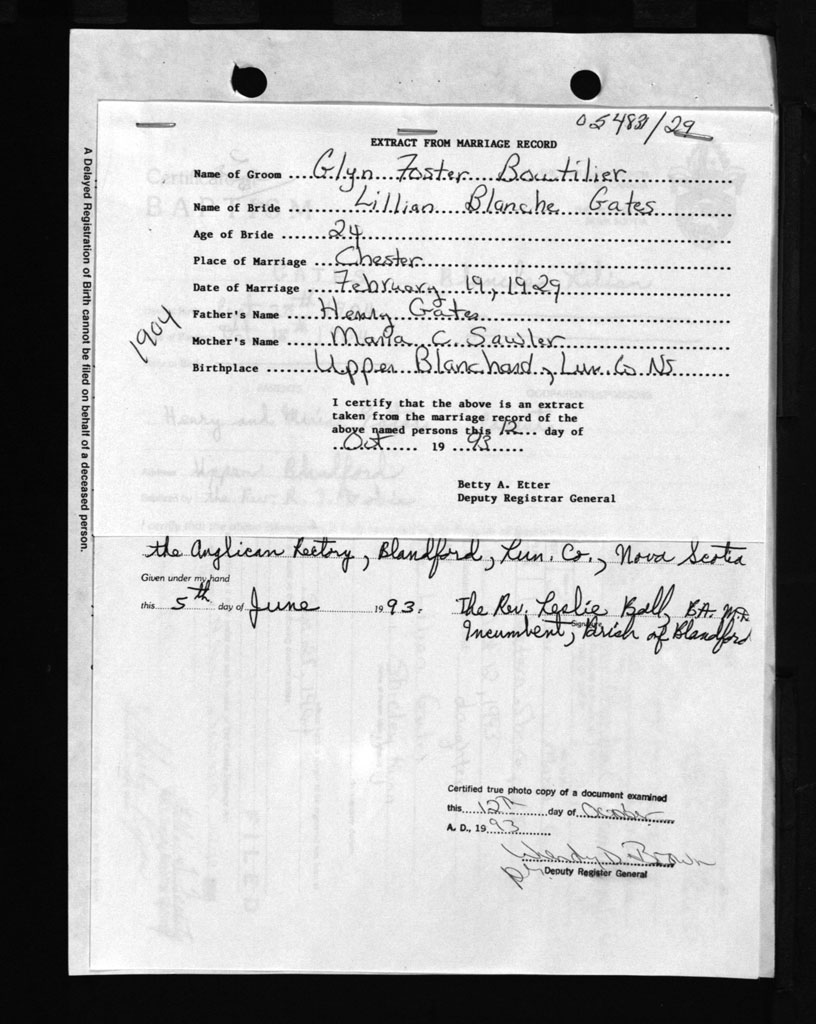 05483/29
EXTRACT FROM MARRIAGE RECORD
Name of Groom ....Glyn Foster Boutilier
Name of Bride ....Lillian Blanche Gates
Age of Bride ....24
Place of Marriage ....Chester
Date of Marriage ....February 19, 1929
Father's Name ....Henry Gates
Mother's Name ....Maria C. Sawler
Birthplace ....Upper Blanchard, Lun. Co. NS
1904
I certify that the above is an extract
taken from the marriage record of the
above named persons this 12 day of
Oct 19 93
Betty A. Etter
Deputy Registrar General
A Delayed Registration of Birth cannot be filed on behalf of a deceased person.
Certificate of
BAPTISM
GATES
Henry and
Upper Blandford
the Rev. R.
the Anglican Rectory, Blandford, Lun. Co., Nova Scotia
Given under my hand
this 5th day of June 1993.
The Rev. Leslie Ball, B.A. M.
Signature
Incumbent, Parish of Blandford
Certified true photo copy of a document examined
this 12th day of October
A. D., 19 93
Wendy D. Brown
Deputy Register General
FILED